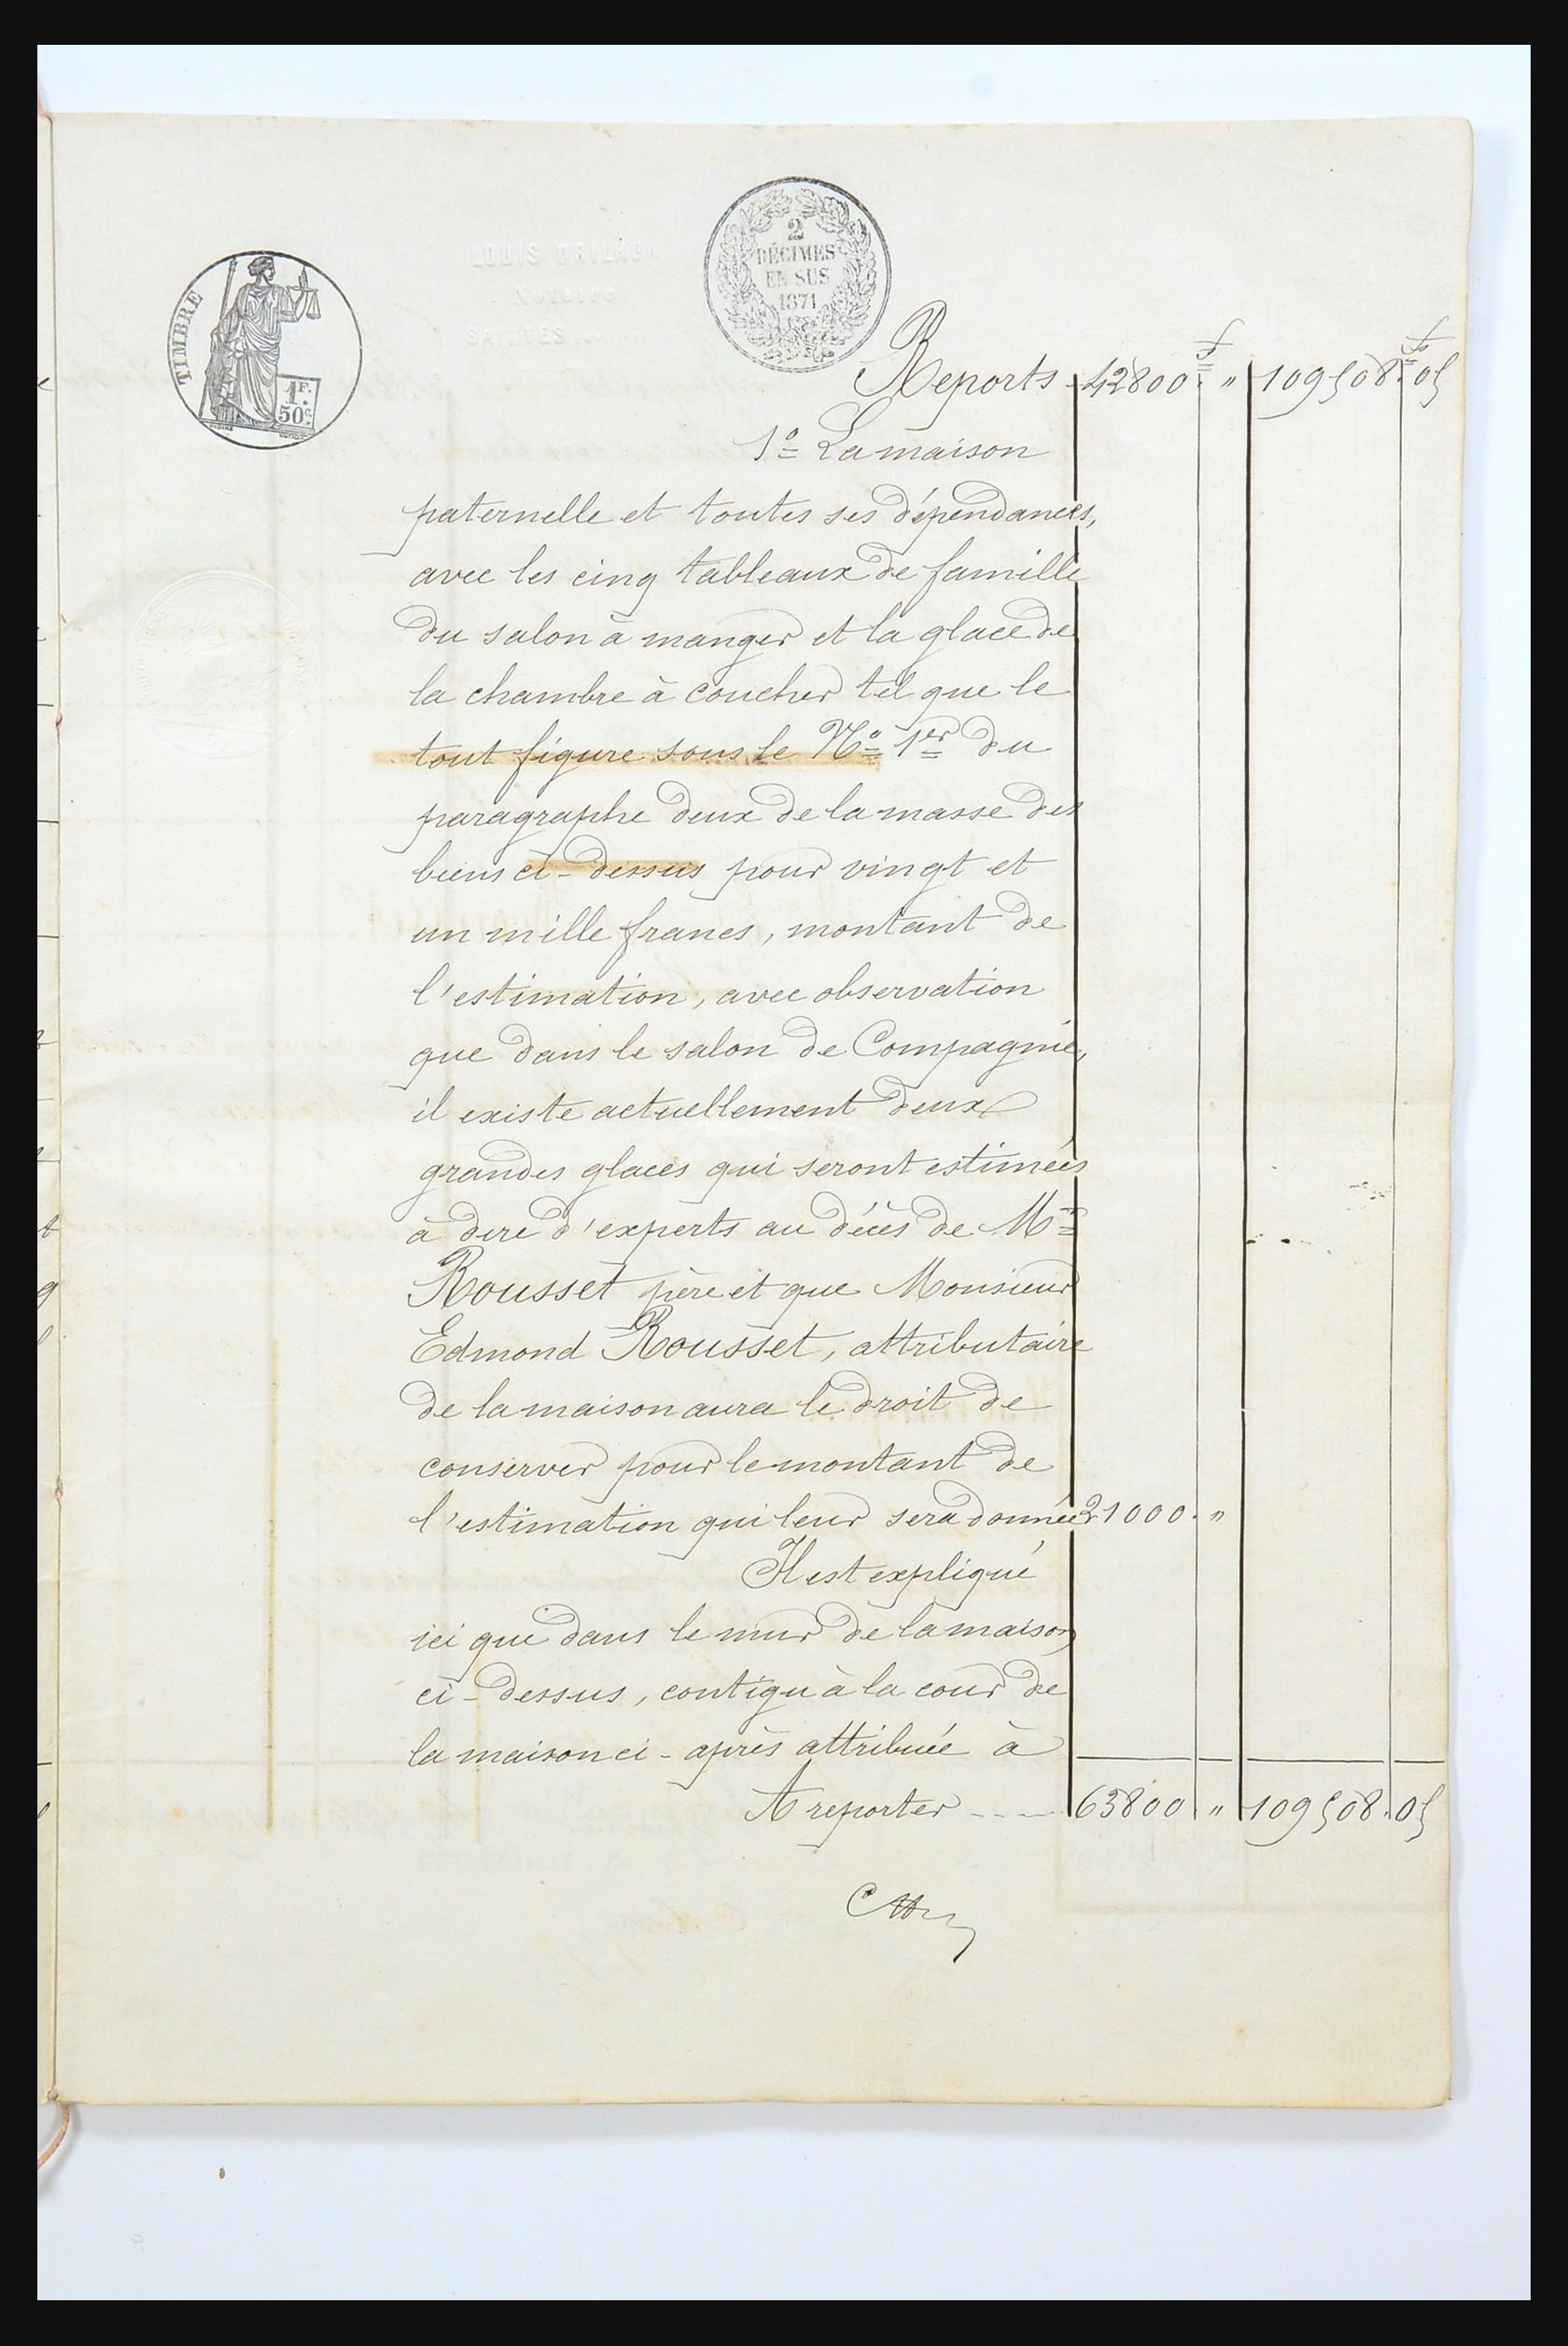 TIMBRE
1 F.
50 c.
LOUIS
NOTAIRE
SAINTES
2
DÉCIMES
EN SUS
1871
Reports 42800 f " 109508 f 05
1º La maison
paternelle et toutes ses dépendances,
avec les cinq tableaux de famille
du salon à manger et la glace de
la chambre à coucher tel que le
tout figure sous le Nº 1er du
paragraphe deux de la masse des
biens ci-dessus pour vingt et
un mille francs, montant de
l'estimation, avec observation
que dans le salon de Compagnie,
il existe actuellement deux
grandes glaces qui seront estimées
à dire d'experts au décès de Mr
Rousset père et que Monsieur
Edmond Rousset, attributaire
de la maison aura le droit de
conserver pour le montant de
l'estimation qui leur sera donnée 21000. "
Il est expliqué
ici que dans le mur de la maison
ci-dessus, contigu à la cour de
la maison ci-après attribuée à
A reporter ---- 63800 " 109508.05